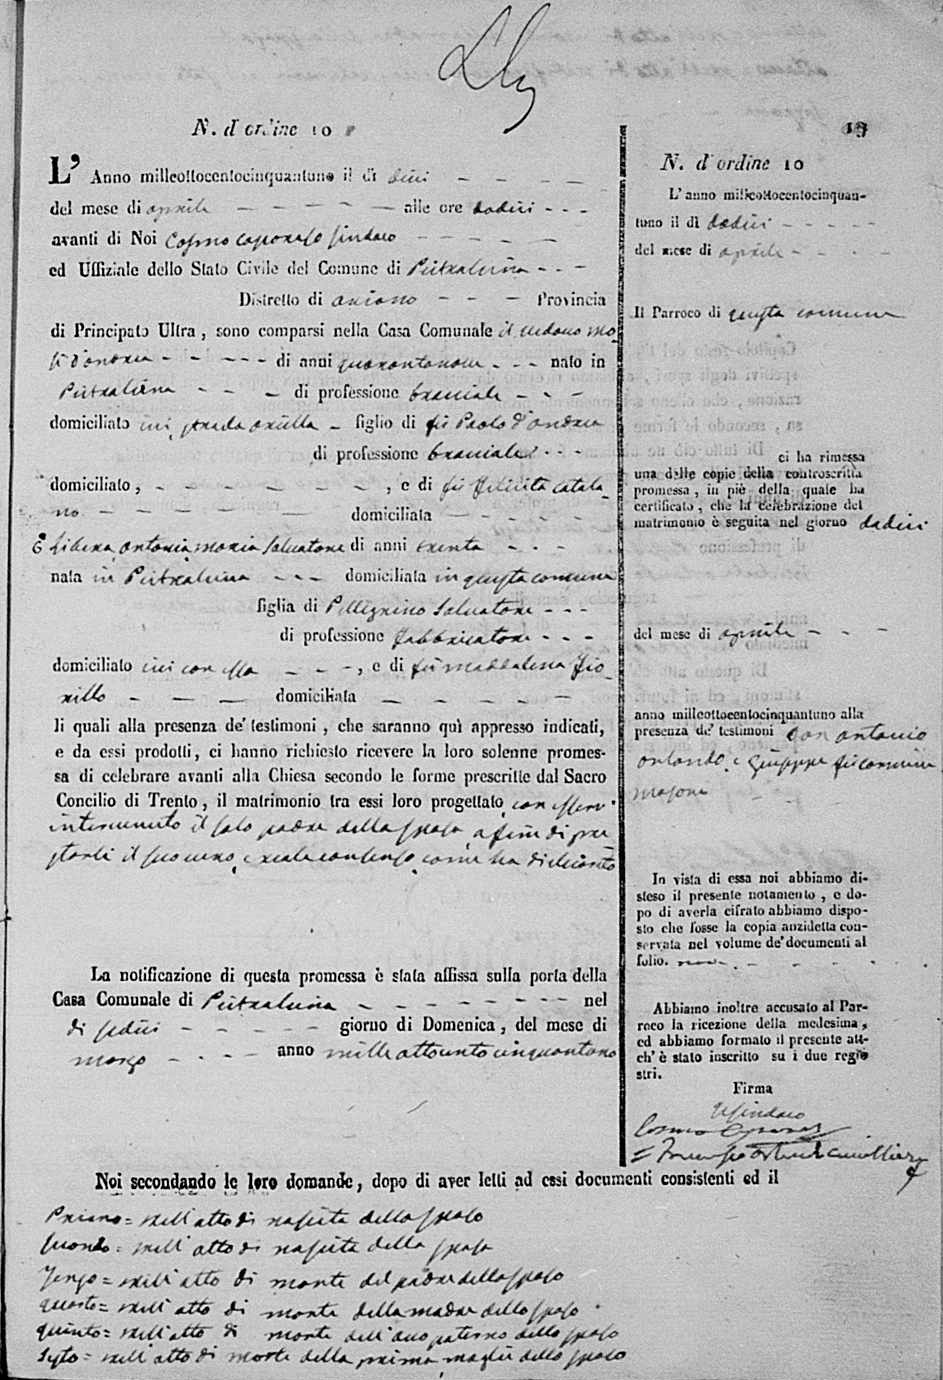 N. d'ordine 10
L' Anno milleottocentocinquantuno il dì dieci
del mese di aprile alle ore dodici
avanti di Noi Cosmo caporaso sindaco
ed Uffiziale dello Stato Civile del Comune di Pietralcina
Distretto di ariano Provincia
di Principato Ultra, sono comparsi nella Casa Comunale il vedovo
d'andrea di anni quarantanove nato in
Pietralcina di professione bracciale
domiciliato ivi strada figlio di fu Paolo d'andrea
di professione bracciale
domiciliato, , e di fu felicita catala-
no domiciliata
E Libera antonia maria Salvatore di anni trenta
nata in Pietralcina domiciliata in questa comune
figlia di Pellegrino Salvatore
di professione fabbricatore
domiciliato ivi con essa , e di fu maddalena fio-
rillo domiciliata
li quali alla presenza de' testimoni, che saranno quì appresso indicati,
e da essi prodotti, ci hanno richiesto ricevere la loro solenne promes-
sa di celebrare avanti alla Chiesa secondo le forme prescritte dal Sacro
Concilio di Trento, il matrimonio tra essi loro progettato con esservi
intervenuto il solo padre della sposa, a fine di pre
starli il suo, e reale consenso, come ha dichiarato
La notificazione di questa promessa è stata affissa sulla porta della
Casa Comunale di Pietralcina nel
dì sedici giorno di Domenica, del mese di
marzo anno mille ottocento cinquantuno
19
N. d'ordine 10
L' anno milleottocentocinquan-
tuno il dì dodici
del mese di aprile
Il Parroco di questa comune
ci ha rimessa
una delle copie della controscritta
promessa, in piè della quale ha
certificato, che la celebrazione del
matrimonio è seguita nel giorno dodici
del mese di aprile
anno milleottocentocinquantuno alla
presenza de' testimoni don antonio
orlando, e Giuseppe
masone
In vista di essa noi abbiamo di-
steso il presente notamento, e do-
po di averla cifrato abbiamo dispo-
sto che fosse la copia anzidetta con-
servata nel volume de' documenti al
folio. nove
Abbiamo inoltre accusato al Par-
roco la ricezione della medesima,
ed abbiamo formato il presente at-
ch' è stato inscritto su i due regi
stri.
Firma
Il sindaco
Cosmo Caporaso
Noi secondando le loro domande, dopo di aver letti ad essi documenti consistenti ed il
Primo = nell'atto di nascita dello sposo
secondo = nell'atto di nascita della sposa
Terzo = nell'atto di morte del padre dello sposo
quarto = nell'atto di morte della madre dello sposo
quinto = nell'atto di morte dell'avo paterno dello sposo
sesto = nell'atto di morte della prima moglie dello sposo